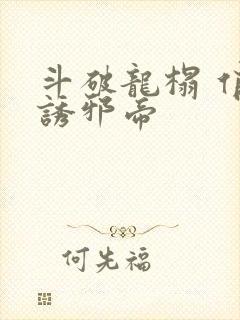 斗破龍榻
誘邪帝
何先福